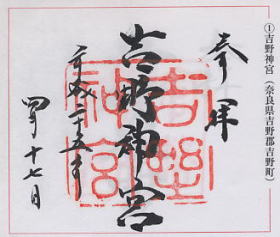 ①吉野神宮(奈良県吉野郡吉野町)
奉拝
吉野神宮
平成二十五年
四月十七日
吉野神宮